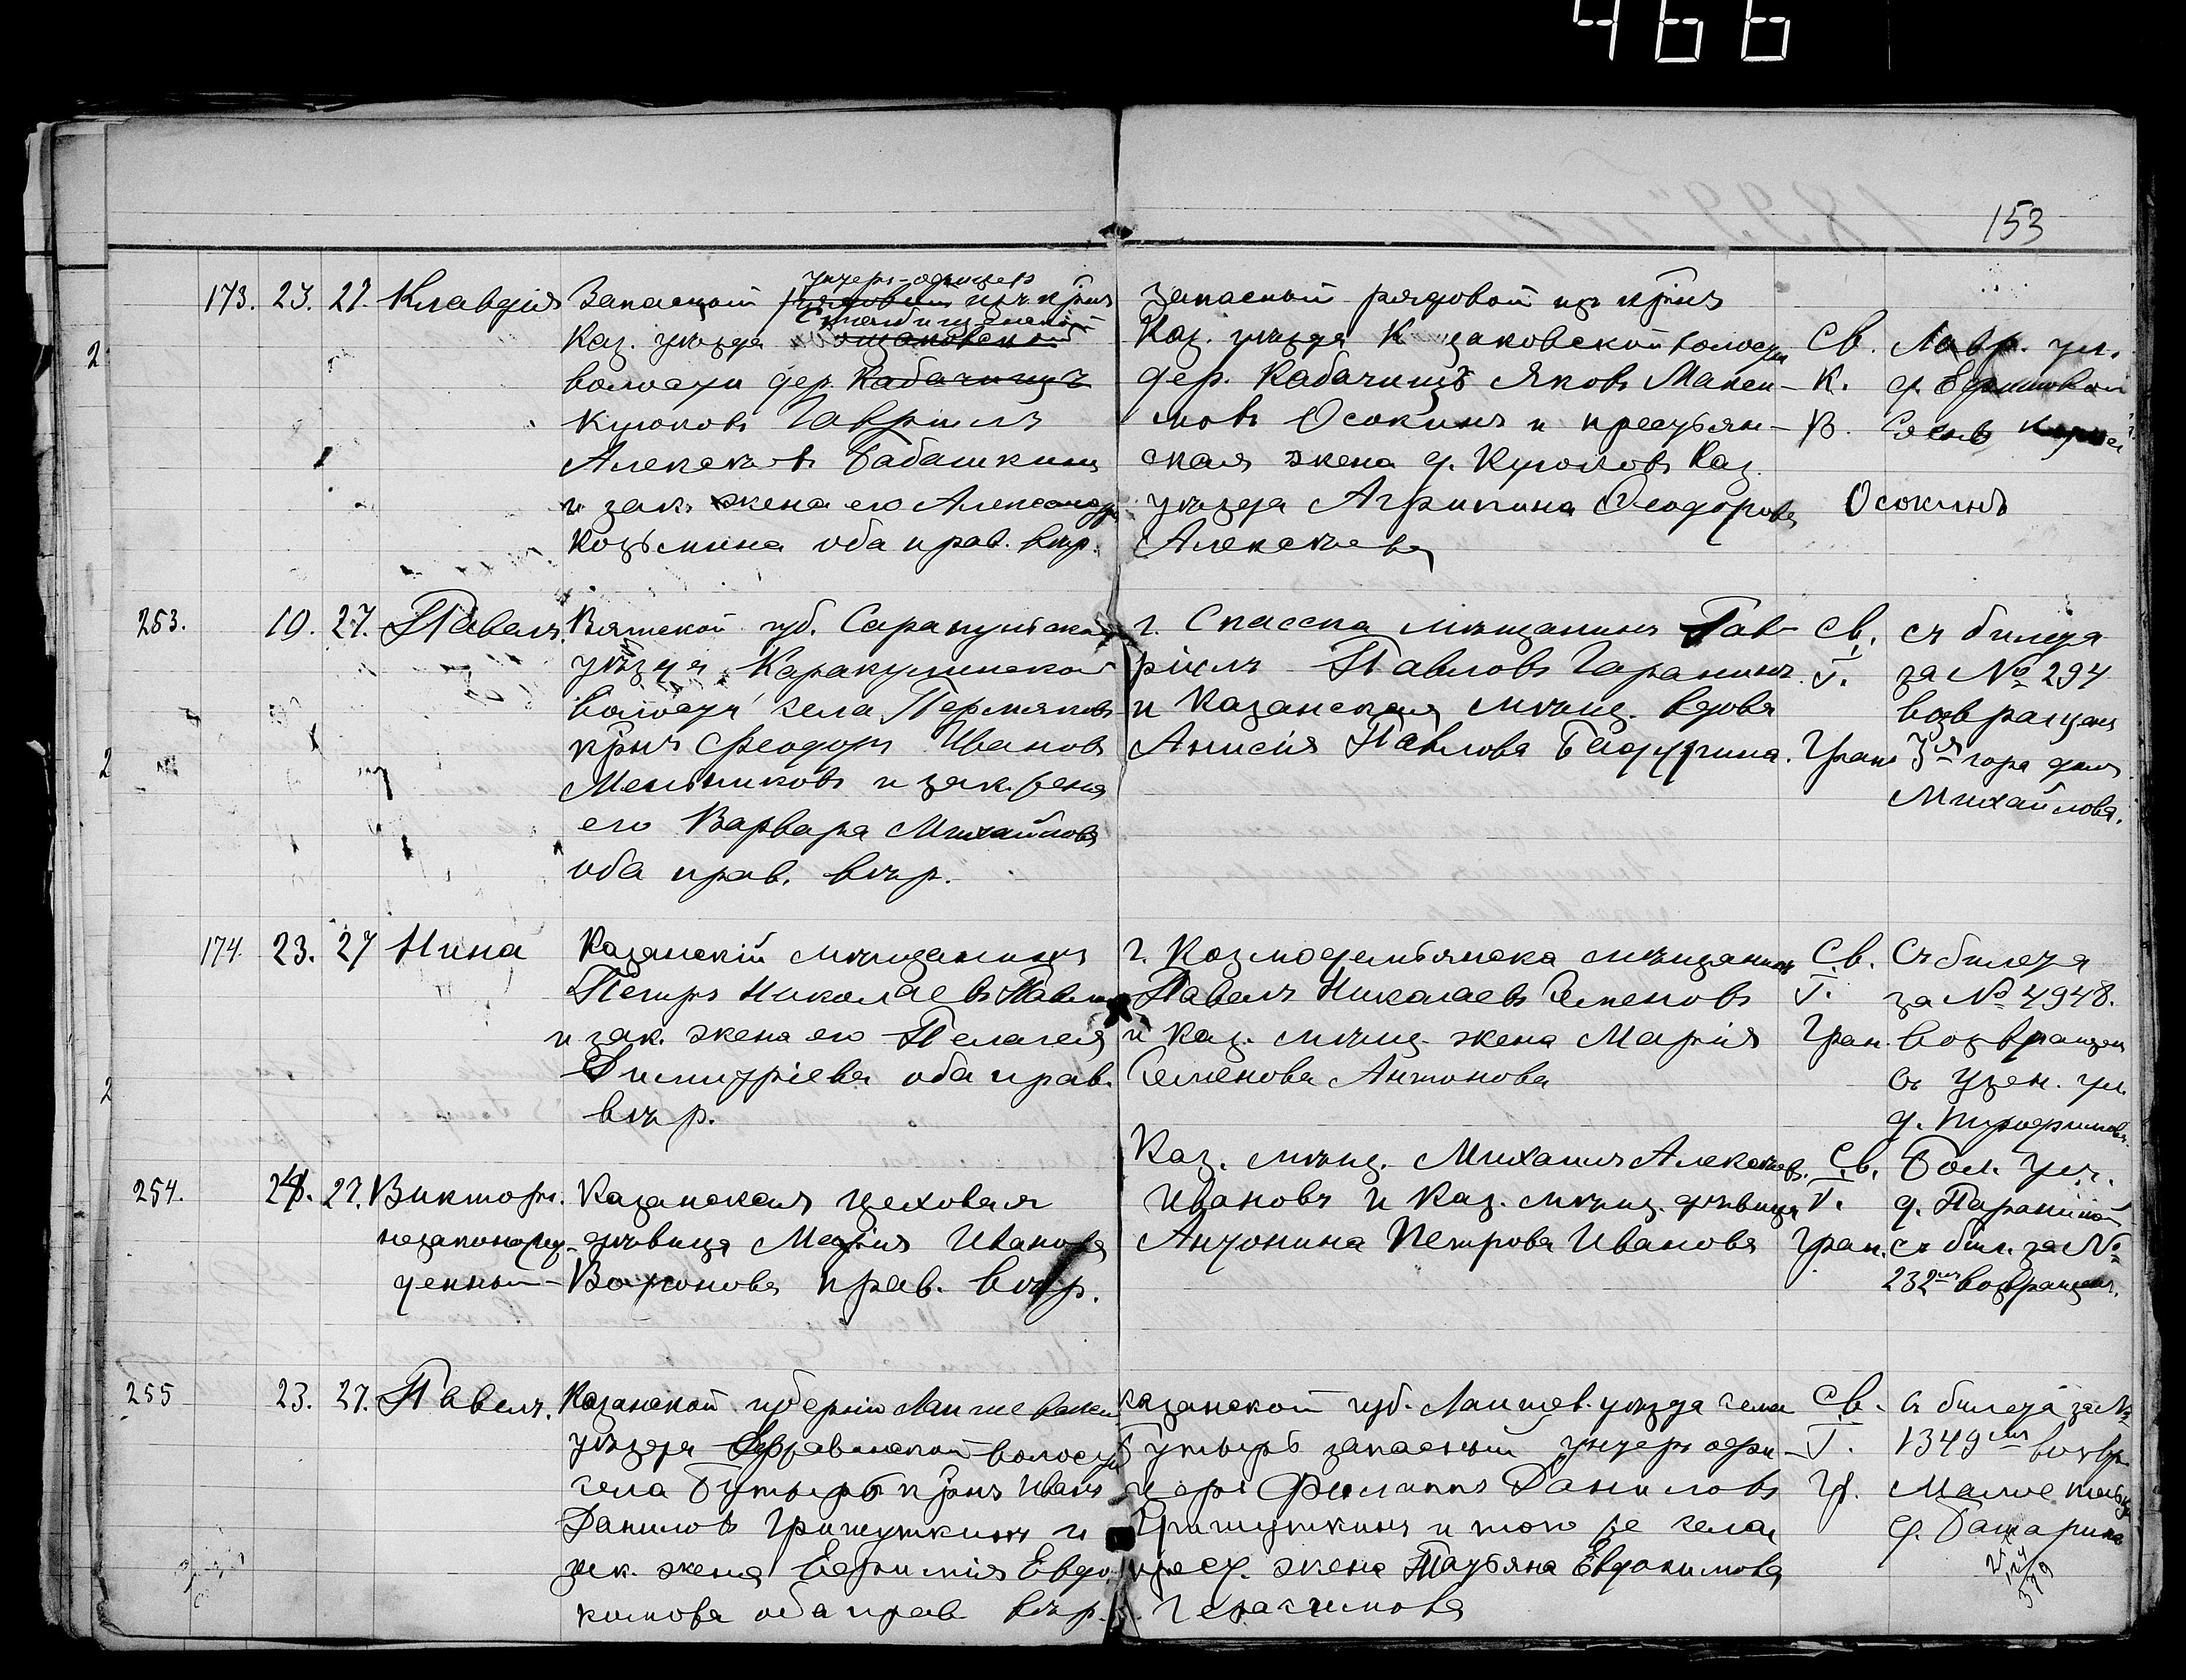 466
153
173. 23. 27. Клавдія
Запасный унтеръ-офицеръ изъ кр̃нъ
Каз. уѣзда
волости дер. Кабачищъ
Куюковъ Гавріилъ
Алексѣевъ Бабашкинъ
и зак. жена его Александра
Козьмина оба прав. вѣр.
запасный рядовой из кр̃нъ
Каз. уѣзда волости
дер. Кабачищъ Яковъ Макси-
мовъ Осокинъ и крестьян-
ская жена д. Куюковъ Каз.
уѣзда Агрипина Ѳеодорова
Алексѣева
Св.
К.
В.
Лавр. ул.
д.
Осокинъ
2
253. 19. 27. Павелъ.
Вятской губ. Сарапульскаго
уѣзда, Каракулинской
волости села Пермяковъ
кр̃нъ Ѳеодоръ Ивановъ
Мельниковъ и зак. жена
его Варвара Михайлова
оба прав. вѣр.
г. Спасска мѣщанинъ Гав-
ріилъ Павловъ Гаранинъ
и Казанская мѣщ. вдова
Анисія Павлова
Св.
Т.
Гран.
съ билета
за № 294
возвращен
3я гора домъ
Михайлова.
2
174. 23. 27 Нина
Казанскій мѣщанинъ
Петръ Николаевъ
и зак. жена его Пелагея
Димитріева оба прав.
вѣр.
г. Козмодемьянска мѣщанинъ
Павелъ Николаевъ Семеновъ
и Каз. мѣщ. жена Марія
Семенова Антонова
Св.
Т.
Гран.
Съ билета
за № 4948.
возвращен
ул.
д.
2
254. 27. Викторъ.
незаконорж-
денный
Казанская цеховая
дѣвица Марія Иванова
прав. вѣр.
Каз. мѣщ. Михаилъ Алексѣев.
Ивановъ и Каз. мѣщ. дѣвица
Антонина Петрова Иванова
Св.
Т.
Гран.
Бол. ул.
д.
съ бил. за №
232 возвращен.
255 23. 27. Павелъ.
Казанской губерніи Лаишевскаго
уѣзда волости
села Бутырь кр̃нъ Иванъ
Даниловъ Гришуткинъ и
зак. жена Евфимія Евдо-
кимова оба прав вѣр.
Казанской губ. Лаишев. уѣзда села
Бутырь запасный унтеръ офи-
церъ Филиппъ Даниловъ
Гришуткинъ и того же села
крест. жена Татьяна Евдокимова
Герасимова
Св.
Т.
Гр.
съ билета за №
1349
д.